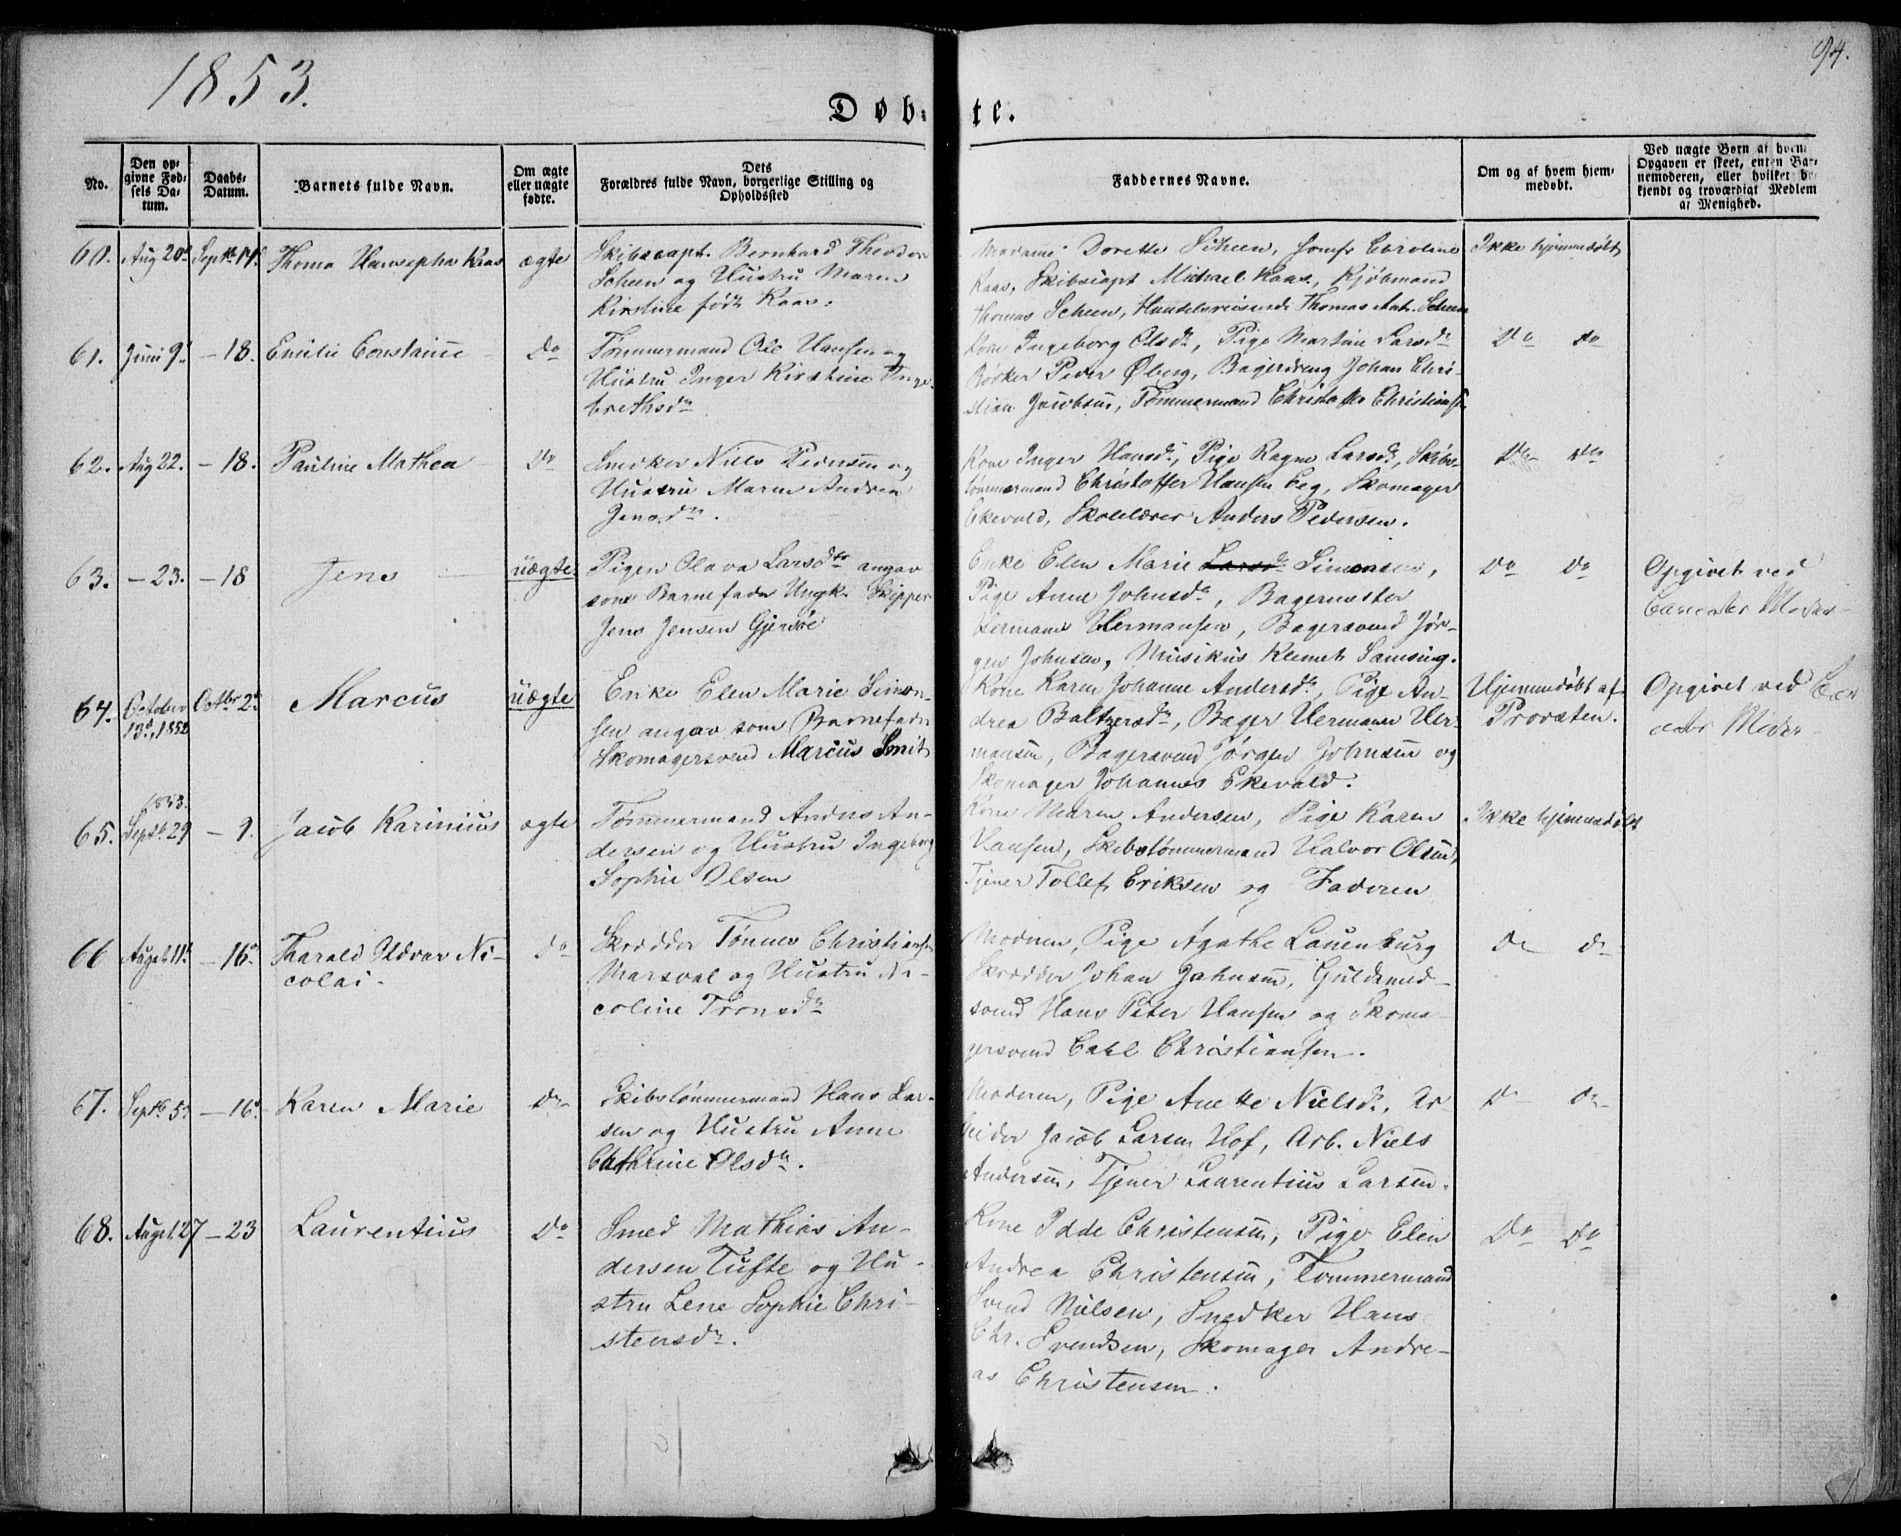 1853.
94.
Døb-
te.
No.
Den op-
givne Fød-
sels Da-
tum.
Daabs-
Datum.
Barnets fulde Navn.
Om ægte
eller uægte
fødte.
Dets
Forældres fulde Navn, borgerlige Stilling og
Opholdssted
Faddernes Navne.
Om og af hvem hjem-
medøbt.
Ved uægte Børn af hvem
Opgaven er skeet, enten Bar-
nemoderen, eller hvilket be-
kjendt og troværdigt Medlem
af Menighed.
60. Aug 20d Septbr 14d Thoma Hansepha Kaas ægte
Skibscapt. Bernhard Theodor
Scheen og Hustru Maren
Kirstine født Kaas.
Madame Dorette Scheen, Jomfr Caroline
Kaas, Skibscapt Michael Kaas, Kjøbmand
Thomas Scheen, Handelsreisende Thomas Scheen
Ikke hjemmedøbt
61. Juni 9d - 18. Emilie Constance Do
Tømmermand Ole Hansen og
Hustru Inger Kirstine Inge-
brethsdr
Kone Ingeborg Olsdr, Pige Martine Larsdr
Bødker Peder Øberg, Bagerdreng Johan Chri-
stian Jacobsen, Tømmermand Christoffer Christians.
Do Do
62. Aug 22. - 18. Pauline Mathea Do
Snedker Niels Pedersen og
Hustru Maren Andrea
Jensdr.
Kone Inger Hansdr, Pige Ragne Larsdr, Skibs-
tømmermand Christoffer Hansen Eeg, Skomager
Ekevold, Skolelærer Anders Pedersen.
Do Do
63. - 23. - 18 Jens uægte
Pigen Olava Larsdtr angav
som Barnefader Ungk. Skipper
Jens Jensen Gjersøe
Enke Elen Marie Larsdr Simonsen,
Pige Anne Johnsdr, Bagermester
Hermann Hermansen, Bagersvend Jør-
gen Johnsen, Musikus Klemet Samsing.
Do Do
Opgivet ved
Barnets Moder
64. October
13d, 1852 Octbr 2d Marcus uægte
Enke Elen Marie Simon-
sen angav som Barnefader
Skomagersvend Marcus Smit
Kone Karen Johanne Andersdr, Pige An-
drea Baltzersdr, Bager Hermann Her-
mansen, Bagersvend Jørgen Johnsen og
Skomager Johannes Ekevold.
Hjemmedøbt af
Provsten.
Opgivet ved Bar-
nets Moder
1853.
65. Septbr 29 - 9. Jacob Karinius ægte
Tømmermand Anders An-
dersen og Hustru Ingeborg
Sophie Olsen
Kone Maren Andersen, Pige Karen
Hansen, Skibstømmermand Halvor Olsen,
Tjener Tollef Eriksen og Faderen
Ikke hjemmedøbt
66 Augst 11d - 16d Harald Ni-
colai. Do
Skrædder Tønnes Christiansen
Marsvol og Hustru Ni-
coline Tronsdr
Moderen, Pige Agathe Lauenburg
Skrædder Johan Jahnsen, Guldsmed-
svend Hans Peter Hansen og Skoma-
gersvend Carl Christiansen.
Do Do
67. Septbr 5d - 16d Karen Marie Do
Skibstømmermand Hans Lar-
sen og Hustru Anne
Cathrine Olsdr.
Moderen, Pige Anette Nielsdr, Ar-
beider Jacob Larsen Hof, Arb. Niels
Andersen, Tjener Laurentius Larsen.
Do Do
68. Augst 27 - 23 Laurentius Do
Smed Mathias An-
dersen Tufte og Hu-
stru Lene Sophie Chri-
stensdr.
Kone Idde Christensen, Pige Elen
Andrea Christensen, Tømmermand
Svend Nielsen, Snedker Hans
Chr. Svendsen, Skomager Andre-
as Christensen.
Do Do